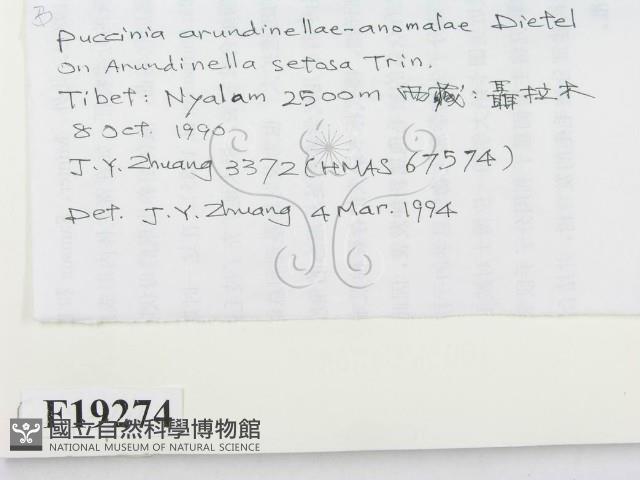 Puccinia arundinellae-anomalae Dietel
on Arundinella setosa Trin.
Tibet: Nyalam 2500m 西藏: 聶拉木
8 Oct. 1990
J.Y. Zhuang 3372 (HMAS 67574)
Det. J.Y. Zhuang 4 Mar. 1994
F19274
國立自然科學博物館
NATIONAL MUSEUM OF NATURAL SCIENCE